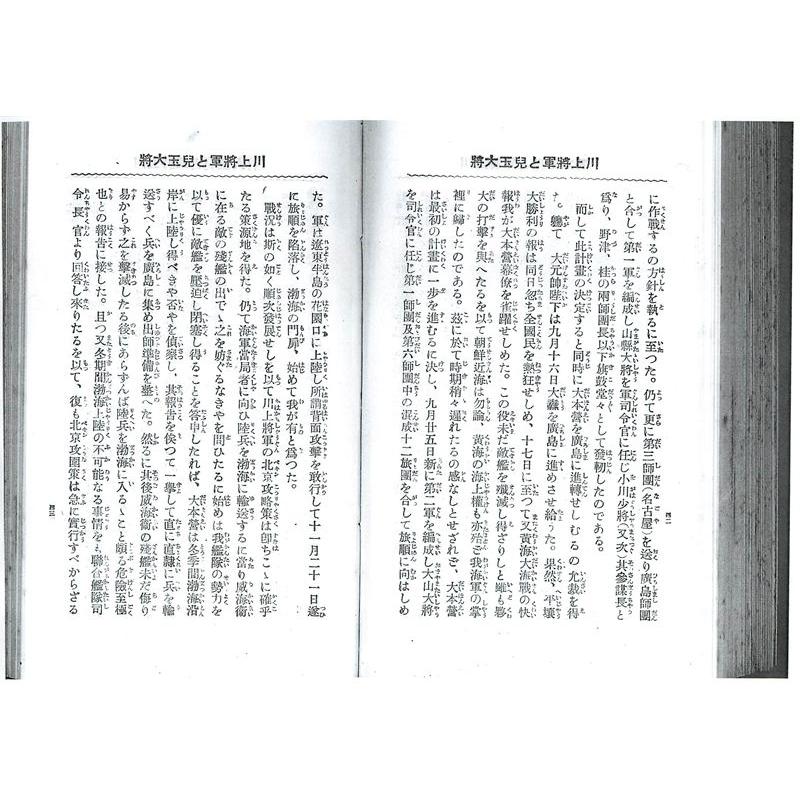 川上將軍と兒玉大將
四二
に作戰するの方針を執るに至つた。仍て更に第三師團(名古屋)を送り廣島師團
と合して第一軍を編成し山縣大將を軍司令官に任じ小川少將(又次)其參謀長と
爲り、野津、桂の兩師團長以下旗鼓堂々として發靱したのである。
而して此計畫の決定すると同時に大本營を廣島に進轉せしむるの允裁を得
た。軈て 大元帥陛下は九月十六日大纛を廣島に進めさせ給うた。果然、平壤
大勝利の報は同日忽ち全國民を熱狂せしめ、十七日に至つて又黃海大海戰の快
報我が大本營幕僚を雀躍せしめた。この役未だ敵艦を殲滅し得ざりしと雖も夥
大の打擊を與へたるを以て朝鮮近海は勿論、黃海の海上權も亦殆ど我海軍の掌
裡に歸したのである。玆に於て時期稍々遲れたるの感なしとせざれど、大本營
は最初の計畫に一步を進むるに決し、九月廿五日新に第二軍を編成し大山大將
を司令官に任じ第一師團及第六師團中の混成十二旅團を合して旅順に向はしめ
川上將軍と兒玉大將
四三
た。軍は遼東半島の花園口に上陸し所謂背面攻擊を敢行して十一月二十一日遂
に旅順を陷落し、渤海の門扉、始めて我が有と爲つた。
戰況は斯の如く順次發展せしを以て川上將軍の北京攻略策は卽ちこゝに確乎
たる策源地を得た。仍て海軍當局者に向ひ陸兵を渤海に輸送するに當り威海衞
に在る敵の殘艦の出でゝ之を妨ぐるなきやを問ひたるに始めは我艦隊の勢力を
以て優に敵艦を壓迫し閉塞し得ることを答申したれば、大本營は冬季間渤海沿
岸に上陸し得べきや否やを偵察し、其報告を俟つて一擧して直に直隷に兵を輸
送すべく兵を廣島に集め出師準備を整へた。然るに其後威海衞の殘艦未だ侮り
易からず之を擊滅したる後にあらずんば陸兵を渤海に入るゝこと頗る危險至極
也との報告に接した。且つ又冬期間渤海上陸の不可能なる事情をも聯合艦隊司
令長官より回答し來りたるを以て、復も北京攻圍策は急に實行すべからざる